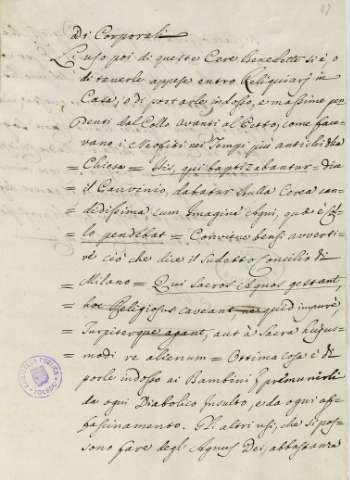 di Corporali
L'uso poi di queste Cere Benedette si è o
di tenerle appese entro Reliquiarj in
Casa, o di portarle indosso, e massime pen
denti dal Collo avanti al Petto, come face-
vano i Neofiti nei Tempi più antichi della
Chiesa = His, qui baptizabantur = dice
il = dabatur Bulla Cerea can-
= didissima, cum Imagine Agni, quæ è Col-
= lo pendebat = Conviene bensì avverti-
re ciò che dice il sudetto Concilio di
= Milano = Qui sacros Agnos gestant,
= hoc Religiosus caveant ne quid impurè,
= Turpiterque agant, aut à Sacra hujus-
= modi re alienum = Ottima cosa è di
porle indosso ai Bambini p premunirli
da ogni Diabolico Insulto, e da ogni af-
fascinamento. Gli altri usi, che si pos-
sono fare degli Agnus Dei, abbastanza
BIBLIOTECA PUBLICA
TOLEDO